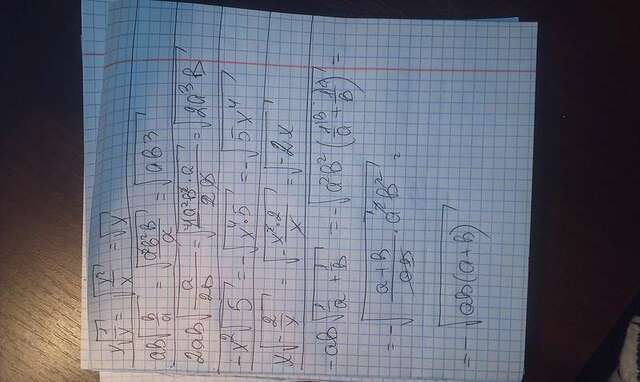 x√(1/x) = √(x²/x) = √x
ab√(b/a) = √(a²b²b/a) = √(ab³)
2ab√(a/2b) = √(4a²b²·a/2b) = √(2a³b)
-x²√5 = -√(x⁴·5) = -√(5x⁴)
x√(-2/x) = √(-x²·2/x) = √(-2x)
-ab√(1/a + 1/b) = -√(a²b²(1/a + 1/b)) =
= -√((a+b)/ab · a²b²) =
= -√(ab(a+b))